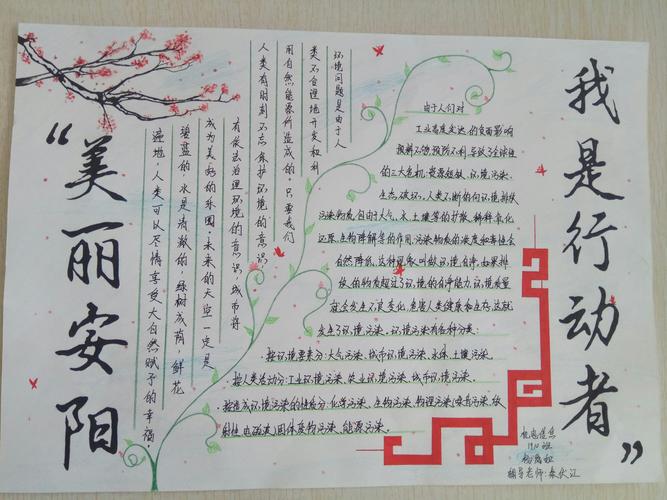 “美丽安阳
我是行动者”
环境问题是由于人
类不合理地开发和利
用自然能源所造成的,只要我们
人类有时刻不忘保护环境的意识
有依法治理环境的意识,城市将
成为美好的乐园,未来的天空一定是
碧蓝的,水是清澈的,绿树成荫,鲜花
遍地,人类可以尽情享受大自然赋予的幸福。
由于人们对
工业高度发达的负面影响
预料不够,预防不利,导致了全球性
的三大危机:资源短缺、环境污染、
生态破坏,人类不断的向环境排放
污染物质。但由于大气、水、土壤等的扩散、稀释、氧化
还原、生物降解等的作用,污染物质的浓度和毒性会
自然降低,这种现象叫做环境自净。如果排
放的物质超过了环境的自净能力,环境质量
就会发生不良变化,危害人类健康和生存,这就
发生了环境污染。环境污染有各种分类:
·按环境要素分:大气污染、城市环境污染、水体、土壤污染。
·按人类活动分:工业环境污染、农业环境污染、城市环境污染。
·按造成环境污染的性质分:化学污染、生物污染、物理污染、噪音污染、放
射性、电磁波、固体废物污染、能源污染。
机电信息
班
辅导老师:秦伏江